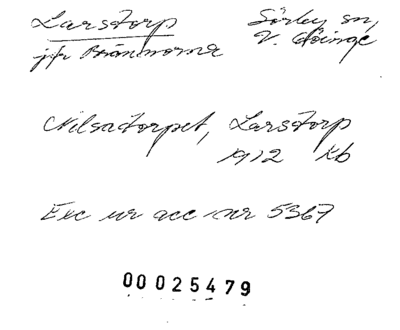 Larstorp Sörby sn,
jfr Brännorna V. Göinge
Nilsatorpet, Larstorp
1912 Kb
Exc ur acc nr 5367
00025479